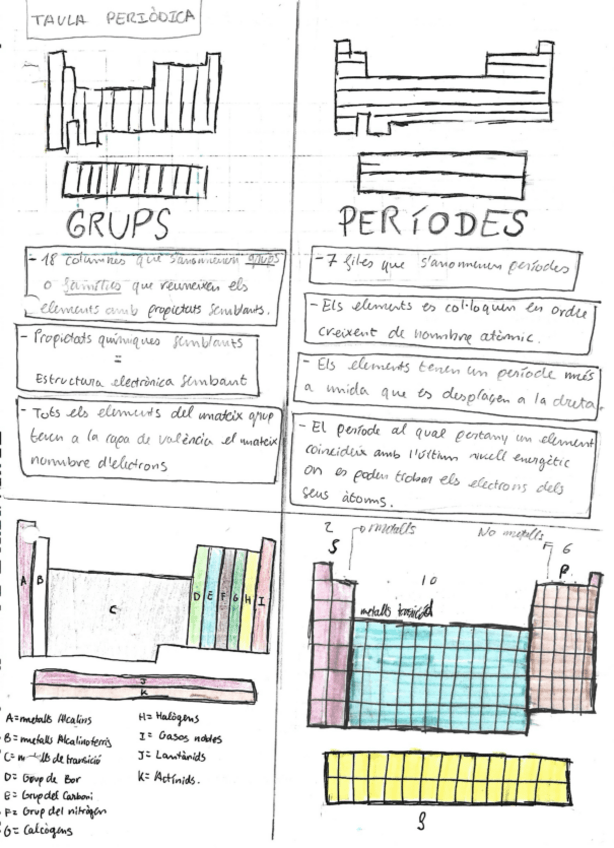 TAULA PERIÒDICA
GRUPS
- 18 columnes que s'anomenen grups
o famílies que reuneixen els
elements amb propietats semblants.
- Propietats químiques semblants
=
Estructura electrònica sembant
- Tots els elements del mateix grup
tenen a la capa de valència el mateix
nombre d'electrons
PERÍODES
- 7 files que s'anomenen períodes
- Els elements es col·loquen en ordre
creixent de nombre atòmic.
- Els elements tenen un període més
a mida que es desplaçen a la dreta.
- El període al qual pertany un element
coincideix amb l'últim nivell energètic
on es poden trobar els electrons dels
seus àtoms.
A
B
C
D
E
F
G
H
I
J
K
A= metalls Alcalins
B= metalls Alcalinoterris
C= metalls de transició
D= Grup de Bor
E= Grup del Carboni
F= Grup del nitrògen
G= Calcògens
H= Halògens
I= Gasos nobles
J= Lantànids
K= Actínids.
2
S
metalls
No metalls
6
P
10
metalls transició